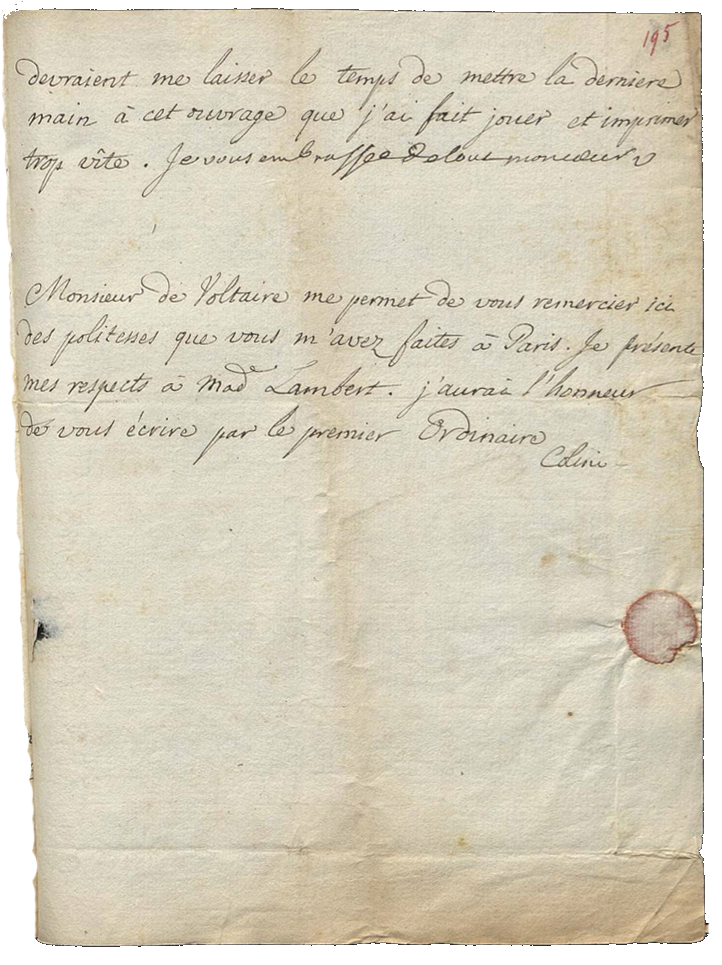 195
devraient me laisser le temps de mettre la derniere
main à cet ouvrage que j'ai fait jouer et imprimer
trop vîte. Je vous embrasse de tout mon cœur v
Monsieur de Voltaire me permet de vous remercier ici
des politesses que vous m'avez faites à Paris. Je présente
mes respects à Made Lambert. j'aurai l'honneur
de vous écrire par le premier Ordinaire
Colini